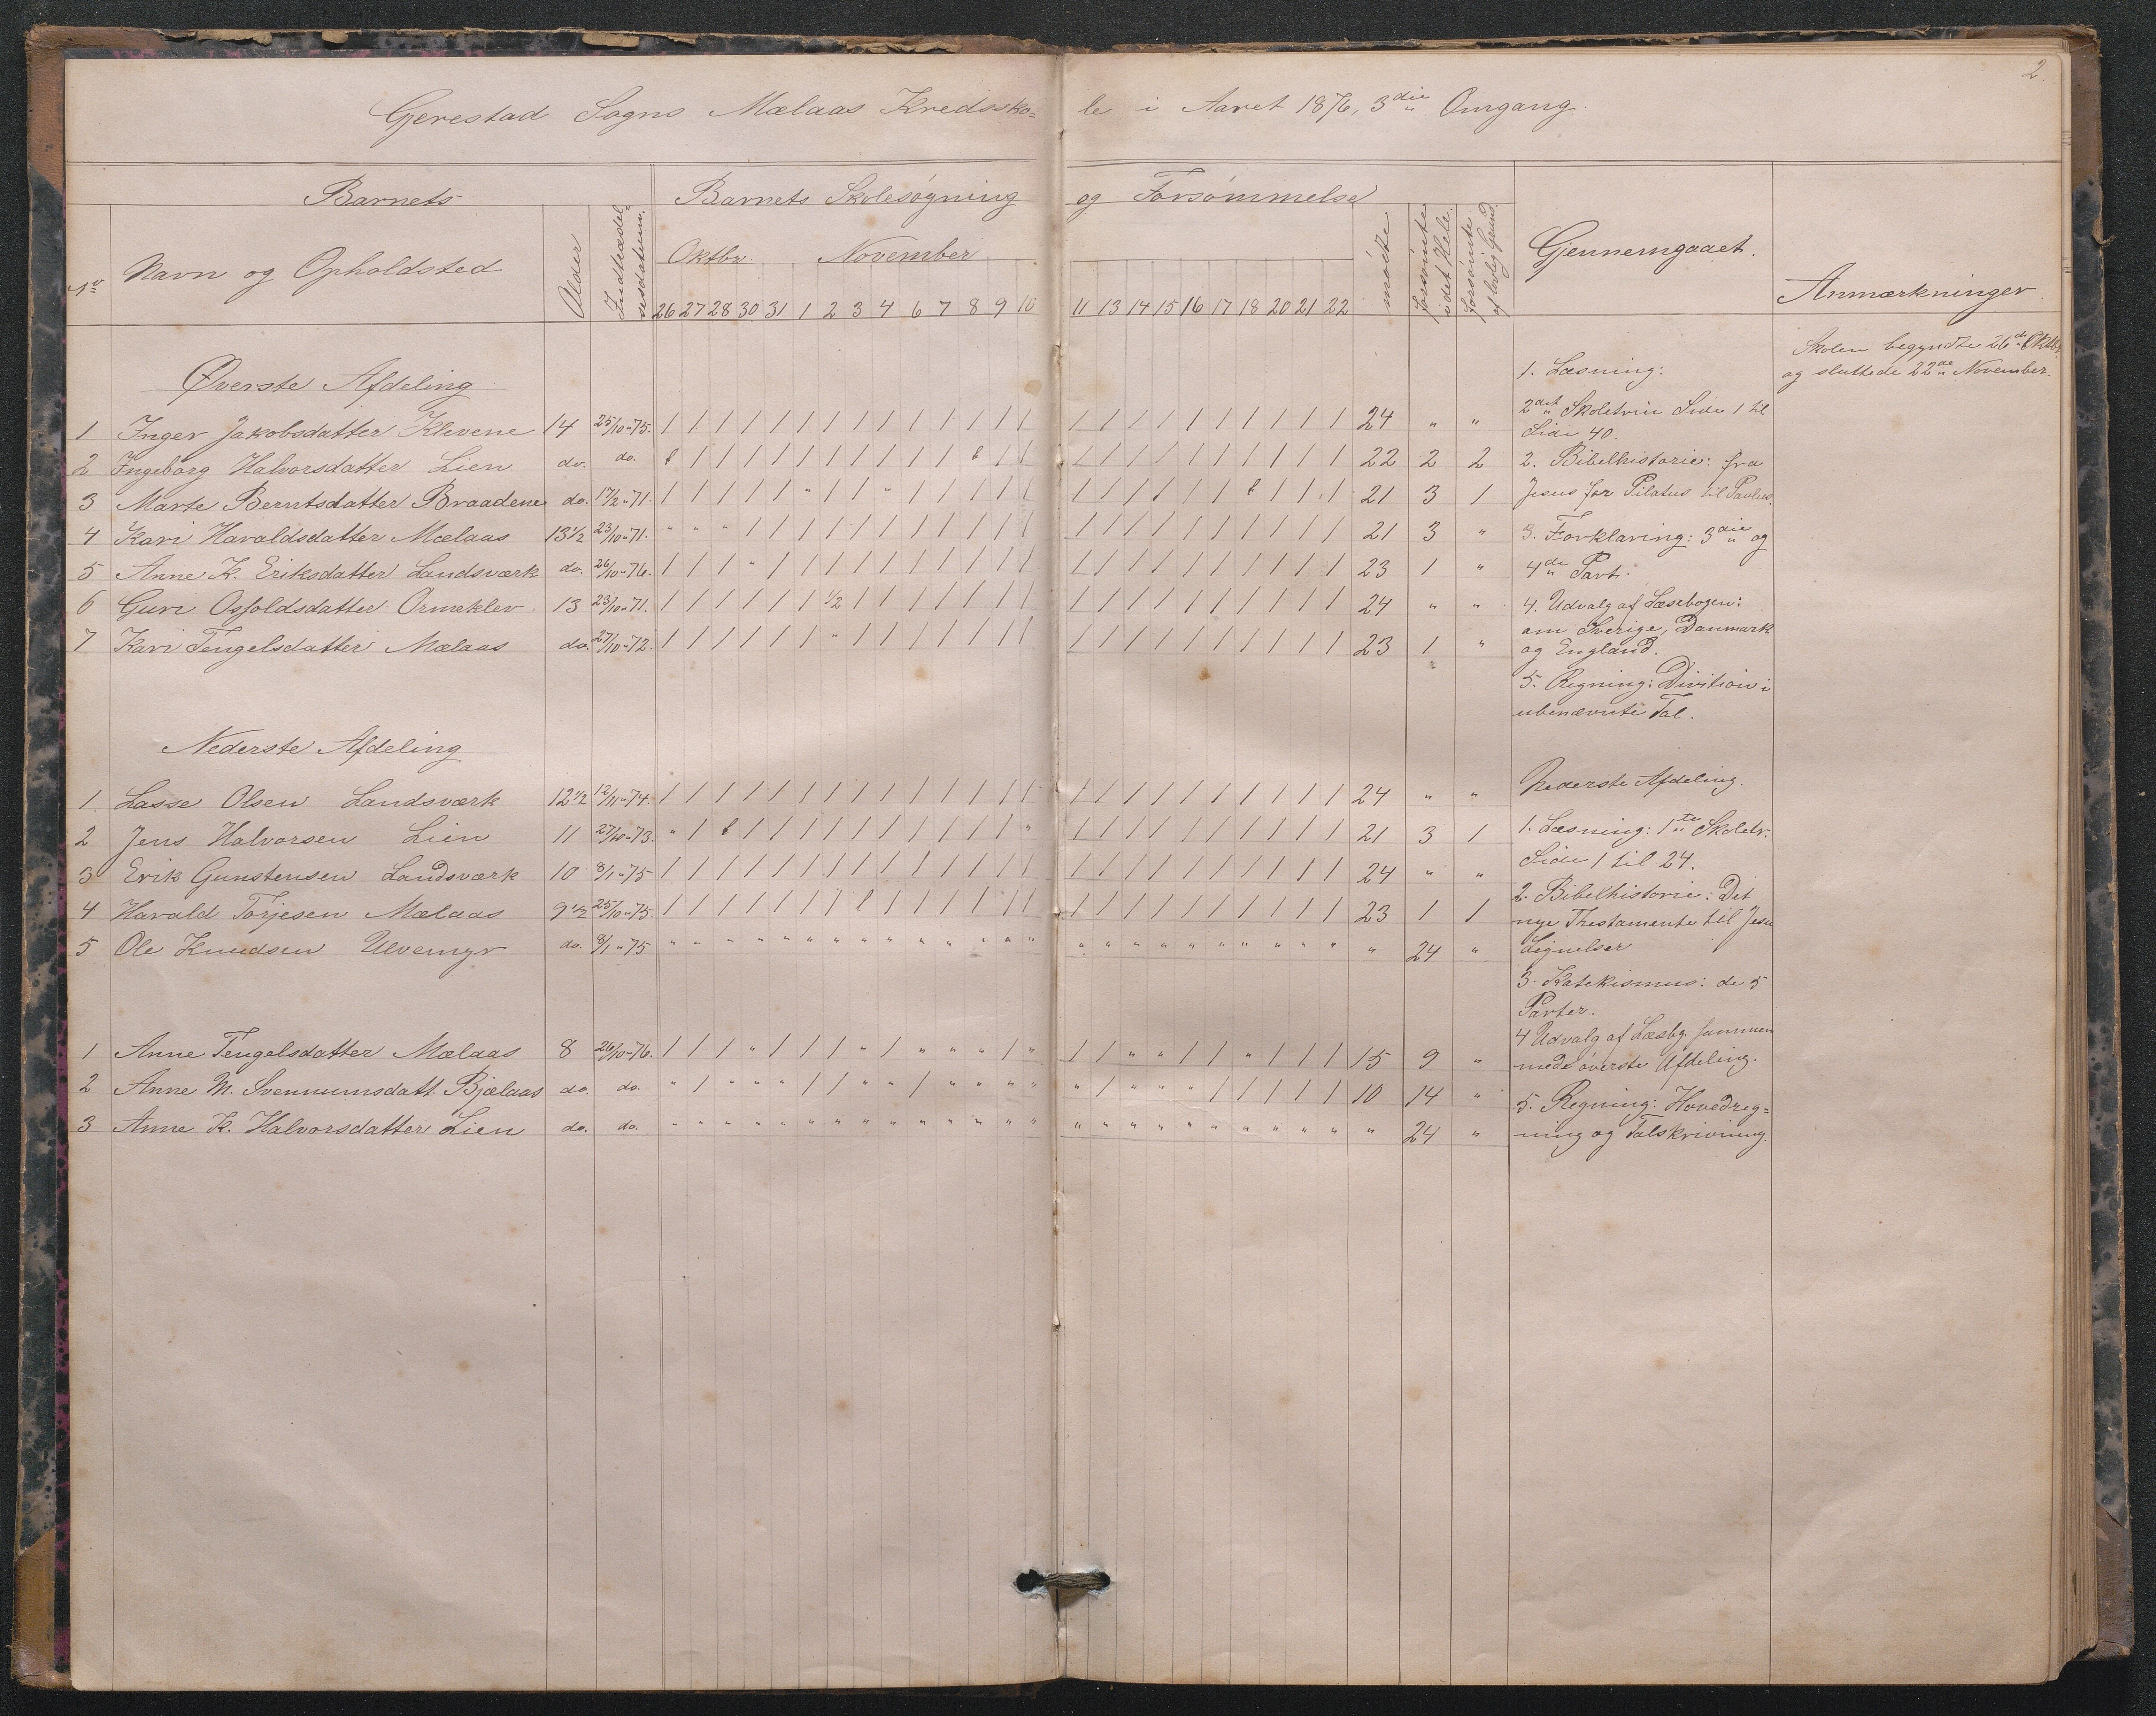 2.
Gjerestad Sogns Mælaas Kredssko=le i Aaret 1876, 3die Omgang.
Barnets
Barnets Skolesøgning og Forsømmelse
No
Navn og Opholdsted
Alder
Indtrædel=
sesdatum.
Oktbr. November
26 27 28 30 31 1 2 3 4 6 7 8 9 10 11 13 14 15 16 17 18 20 21 22
mødte
forsømte
i det Hele.
forsømte
af lovlig Grund.
Gjennemgaaet.
Anmærkninger.
Øverste Afdeling
1 Inger Jakobsdatter Klevene 14 25/10 " 75. / / / / / / / / / / / / / / / / / / / / / / / / 24 " "
2 Ingeborg Halvorsdatter Lien do. do. f / / / / / / / / / / f / / / / / / / / / / / / 22 2 2
3 Marte Berntsdatter Braadene do. 17/2 " 71. / / / / / " / / " / / / / / / / / / / / f / / / 21 3 1
4 Kari Haraldsdatter Mælaas 13 1/2 23/10 " 71. " " " / / / / / / / / / / / / / / / / / / / / / 21 3 "
5 Anne K. Eriksdatter Landsværk do. 26/10 " 76. / / / " / / / / / / / / / / / / / / / / / / / / 23 1 "
6 Guri Osfoldsdatter Ormeklev 13 23/10 " 71. / / / / / / 1/2 / / / / / / / / / / / / / / / / / 24 " "
7 Kari Tengelsdatter Mælaas do. 27/10 " 72. / / / / / / " / / / / / / / / / / / / / / / / / 23 1 "
Nederste Afdeling
1 Lasse Olsen Landsværk 12 1/2 12/11 " 74. / / / / / / / / / / / / / / / / / / / / / / / / 24 " "
2 Jens Halvorsen Lien 11 27/10 " 73. " / f / / / / / / / / / / " / / / / / / / / / / 21 3 1
3 Erik Gunstensen Landsværk 10 8/1 " 75 / / / / / / / / / / / / / / / / / / / / / / / / 24 " "
4 Harald Torjesen Mælaas 9 1/2 25/10 " 75. / / / / / / / f / / / / / / / / / / / / / / / / 23 1 1
5 Ole Knudsen Ulvemyr do. 8/1 " 75 " " " " " " " " " " " " " " " " " " " " " " " " " 24 "
1 Anne Tengelsdatter Mælaas 8 26/10 " 76. / / / " / / / " / " " " / " / / " " / / " / / / 15 9 "
2 Anne M. Svennumsdatt. Bjælaas do. do. " / " " " / / " " / " " " " " / " " " / / / / / 10 14 "
3 Anne K. Halvorsdatter Lien do. do. " " " " " " " " " " " " " " " " " " " " " " " " " 24 "
1. Læsning:
2det Skoletrin Side 1 til
Side 40.
2. Bibelhistorie: fra
Jesus for Pilatus til Paulus.
3. Forklaring: 3die og
4de Part.
4. Udvalg af Læsebogen:
om Sverige, Danmark
og England.
5. Regning: Division i
ubenævnte Tal.
Nederste Afdeling.
1. Læsning: 1te Skoletr.
Side 1 til 24.
2. Bibelhistorie: Det
nye Thestamente til Jesu
Lignelser
3. Katekismus: de 5
Parter.
4 Udvalg af Læsbg. sammen
med øverste Afdeling.
5. Regning: Hovedreg=
ning og Talskrivning.
Skolen begyndte 26de Oktbr.
og sluttede 22de November.